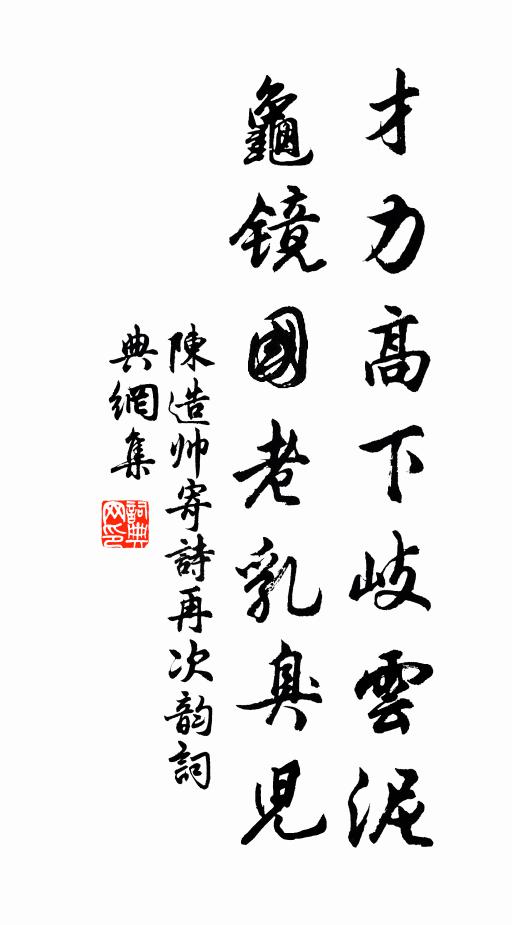 才力高下歧雲泥
龜鏡國老乳臭児
陳造帅寄詩再次韵詞
典網集
詞典網印